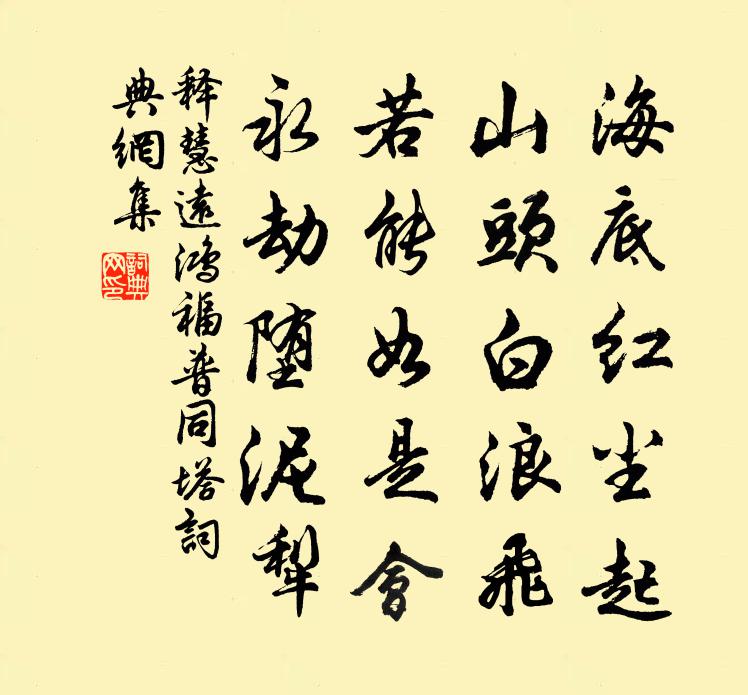 海底红尘起
山頭白浪飛
若能如是會
永劫堕泥犁
释慧遠鴻福普同塔詞
典網集
詞典
网印